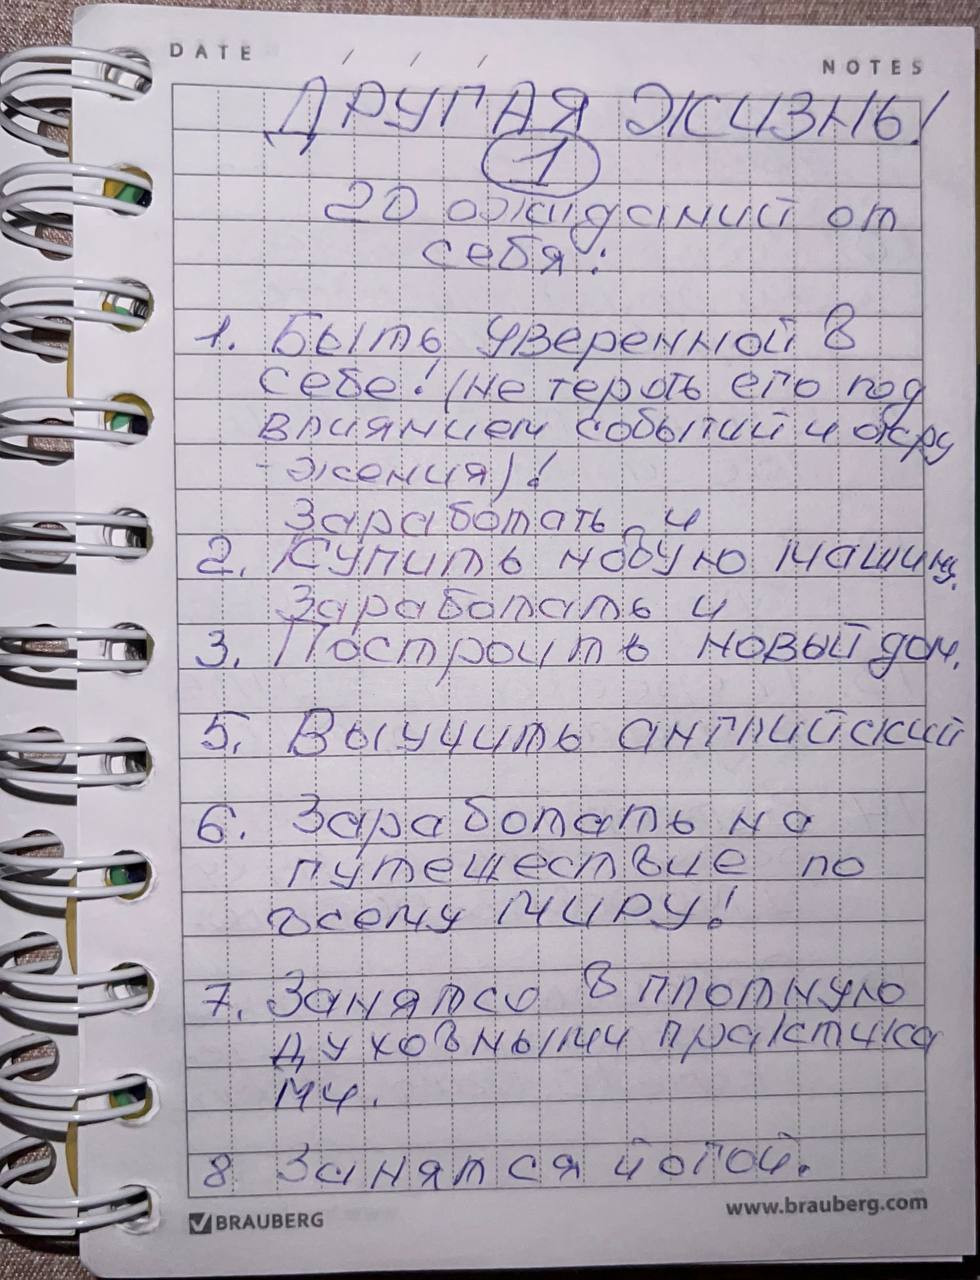 DATE / / /
NOTES
ДРУГАЯ ЖИЗНЬ!
1
20 ожиданий от
себя:
1. Быть уверенной в
себе! (не терять его под
влиянием событий и окру
-жения)!
Заработать и
2. Купить новую машину.
Заработать и
3. Построить новый дом.
5. Выучить английский
6. Заработать на
путешествие по
всему миру!
7. Занятся в плотную
духовными практика
ми.
8 Занятся йогой.
BRAUBERG
www.brauberg.com